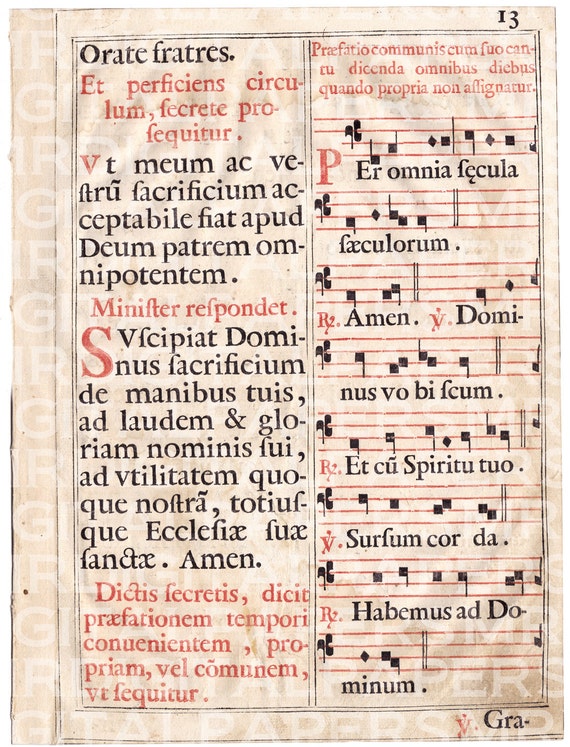 13
Orate fratres.
Et perficiens circu-
lum, ſecrete pro-
ſequitur.
Vt meum ac ve-
ſtrũ ſacrificium ac-
ceptabile fiat apud
Deum patrem om-
nipotentem.
Miniſter reſpondet.
SVſcipiat Domi-
nus ſacrificium
de manibus tuis,
ad laudem & glo-
riam nominis ſui,
ad vtilitatem quo-
que noſtrã, totiuſ-
que Eccleſiæ ſuæ
ſanctæ. Amen.
Dictis ſecretis, dicit
præfationem tempori
conuenientem, pro-
priam, vel cõmunem,
vt ſequitur.
Præfatio communis cum ſuo can-
tu dicenda omnibus diebus
quando propria non aſſignatur.
PEr omnia ſęcula
ſæculorum.
℟. Amen. ℣. Domi-
nus vo bi ſcum.
℟. Et cũ Spiritu tuo.
℣. Surſum cor da.
℟. Habemus ad Do-
minum.
℣. Gra-